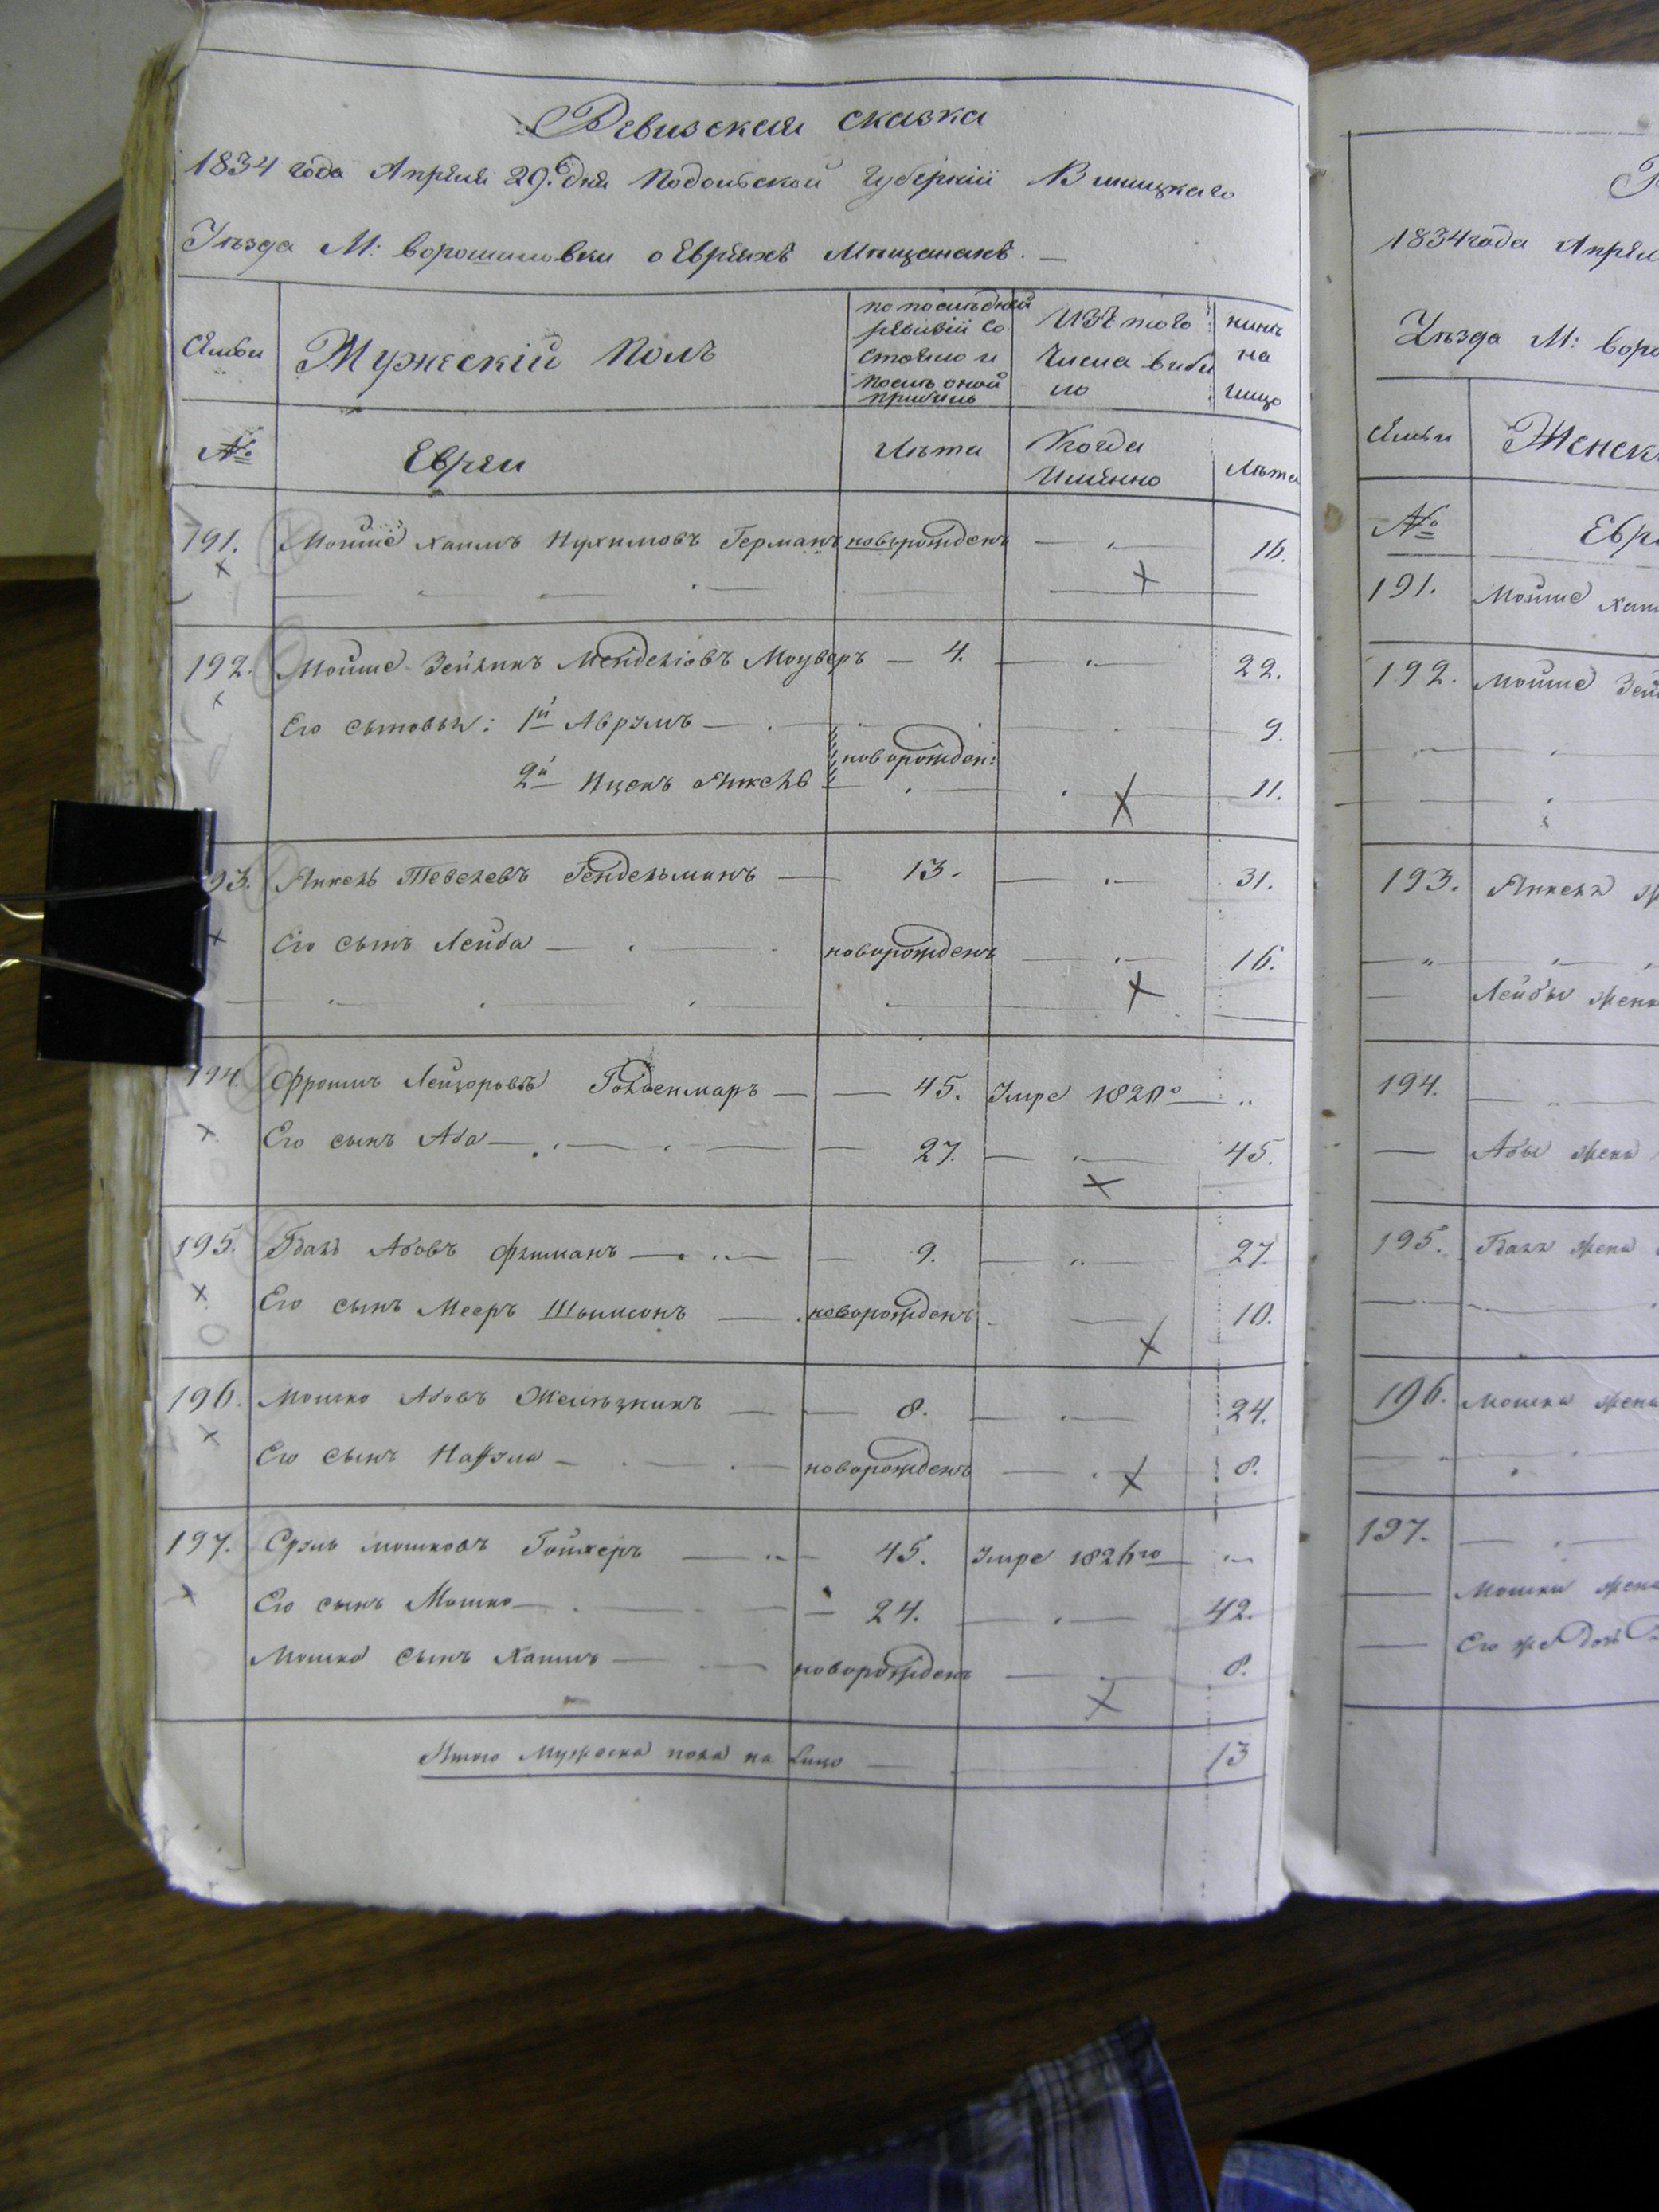 Ревизская сказка
1834 года Апреля 29го дня Подольской Губерніи Виницкаго
Уѣзда М: Ворошиловки о Евреяхъ Мѣщанахъ.
Семьи
Мужескій Полъ
по послѣдней ревизіи состояло и послѣ оной прибыло
Изъ того числа выбыло
нынѣ на лицо
№
Евреи
Лѣта
Когда Именно
Лѣта
191. Мойше Хаимъ Нухимовъ Германъ новорожденъ 16.
192. Мойше Зейликъ Менделіовъ 4. 22.
Его сыновья: 1й Аврумъ 9.
новорожден:
2й Ицекъ Янкель 11.
93. Янкель Тевелевъ Гендельманъ 13. 31.
Его сынъ Лейба новорожденъ 16.
194. Фроимъ Лейзоровъ 45. Умре
Его сынъ Аба 27. 45.
195. Абовъ Фишманъ 9. 27.
Его сынъ Мееръ Шымсонъ новорожденъ 10.
196. Мошко Абовъ Желѣзникъ 8. 24.
Его сынъ новорожденъ 8.
197. Сруль Мошковъ Гойхеръ 45. Умре 1826го
Его сынъ Мошко 24. 42.
Мошка сынъ Хаимъ новорожденъ 8.
Итого мужеска пола на лицо 13
1834 года Апрел
Уѣзда М: Воро
Семьи
Женск
№
Евре
191. Мойше Хаи
192. Мойше Зей
193. Янкеля ж
Лейбы жена
194.
Абы жена
195. жена
196. Мошка жена
197.
Мошки жена
Его же дочь